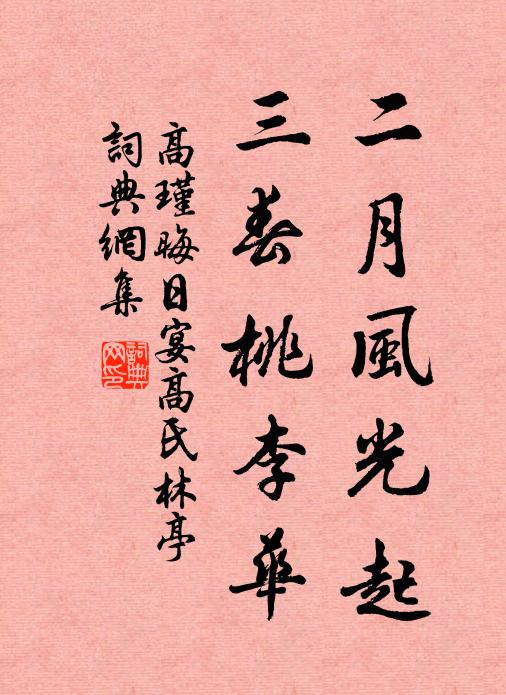 二月風光起
三春桃李華
高瑾晦日宴高氏林亭
詞典網集
詞典網印